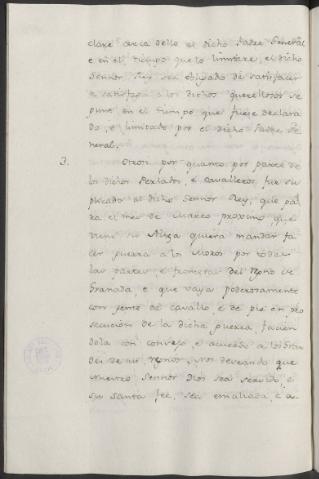 clare acerca dello el dicho Padre General
e en el tiempo que lo limitare, el dicho
Sennor Rey sea obligado de satisfacer
e satisfaga a los dichos querellosos se
pune en el tiempo que fuese declara
do, e limitado por el dicho Padre Ge
neral.
3. Otrosi, por quanto por parte de
los dichos Perlados, e Cavalleros, fue su
plicado al dicho Sennor Rey, que pa
ra el mes de Marzo proximo que
viene su Alteza quiera mandar fa
cer guerra a los Moros por todas
las partes, e fronteras del Regno de
Granada, e que vaya poderosamente
con gente de cavallo, e de pie en pro
secucion de la dicha guerra, facien
dola con consejo, e acuerdo a los Gran
des de sus Regnos. Nos deseando que
Nuestro Sennor Dios sea servido, e
su santa fee, sea ensalzada, e a